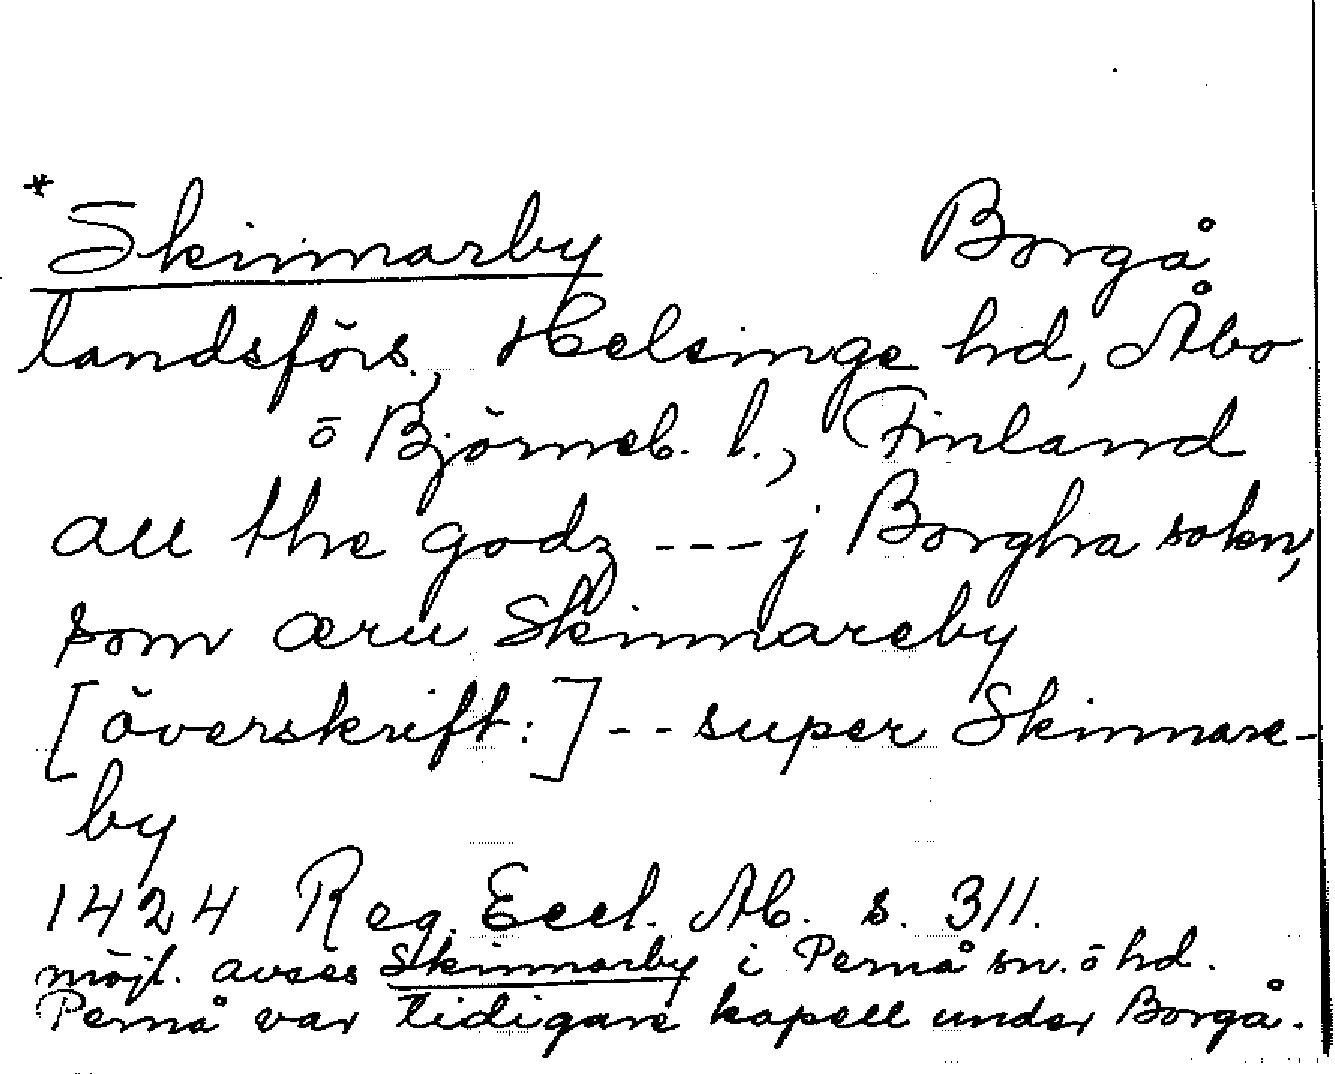 *Skinnarby Borgå
landsförs., Helsinge hd, Åbo
ō Björneb. l., Finland
all the godz --- j Borgha sokn,
som æru Skinnareby
[överskrift:] -- super Skinnare-
by
1424 Reg. Eccl. Ab. s. 311.
möjl. avses Skinnarby i Pernå sn. ō hd.
Pernå var tidigare kapell under Borgå.